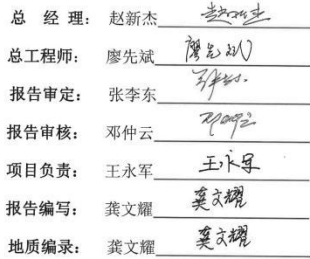 总 经 理: 赵新杰 赵新杰
总工程师: 廖先斌 廖先斌
报告审定: 张李东
报告审核: 邓仲云 邓仲云
项目负责: 王永军 王永军
报告编写: 龚文耀 龚文耀
地质编录: 龚文耀 龚文耀